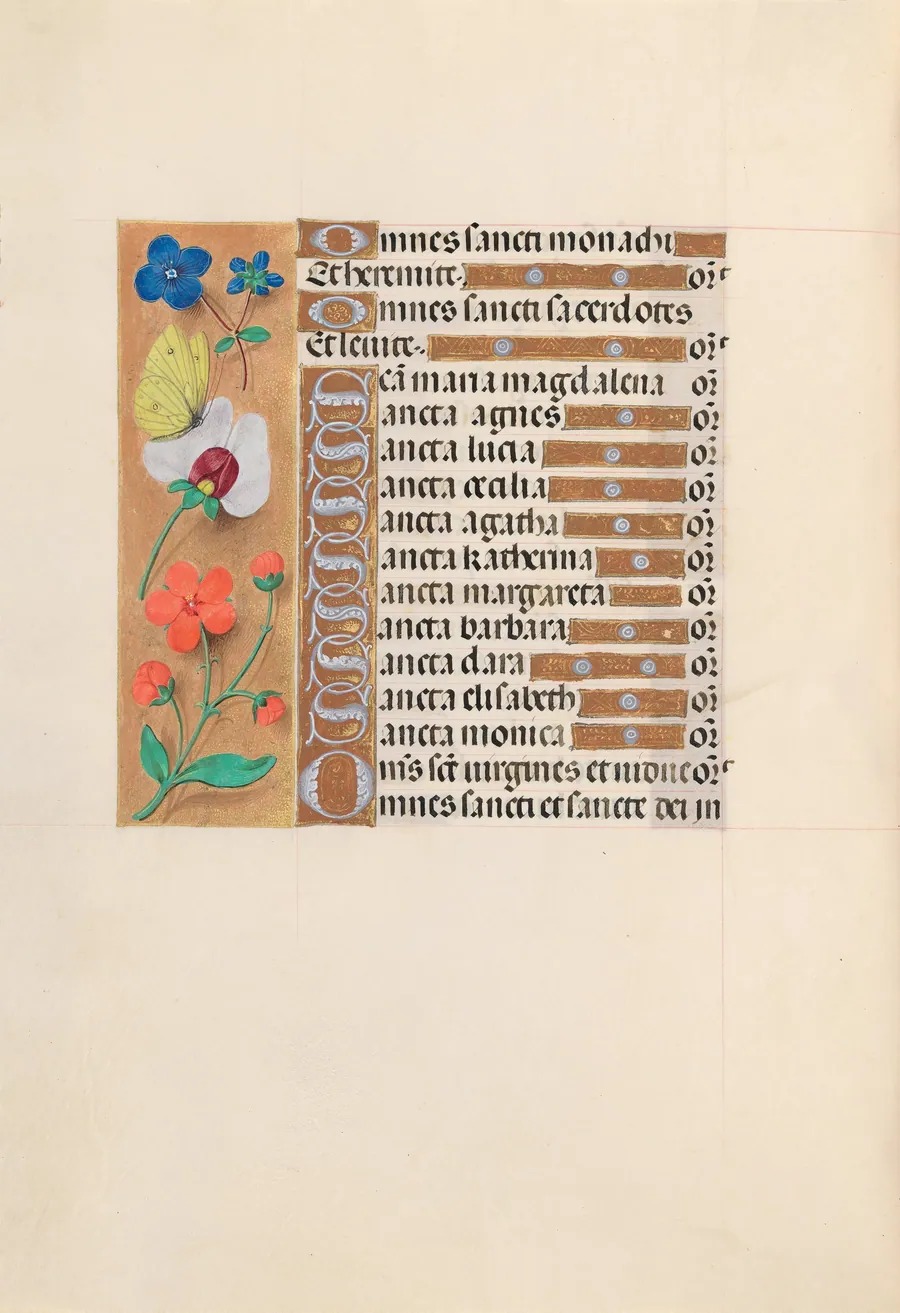 Omnes sancti monachi
Et heremite. or̄
Omnes sancti sacerdotes
Et leuite. or̄
Scā maria magdalena or̄
Sancta agnes or̄
Sancta lucia or̄
Sancta cecilia or̄
Sancta agatha or̄
Sancta katherina or̄
Sancta margareta or̄
Sancta barbara or̄
Sancta clara or̄
Sancta elisabeth or̄
Sancta monica or̄
Om̄s scē uirgines et uidue or̄
Omnes sancti et sancte dei in